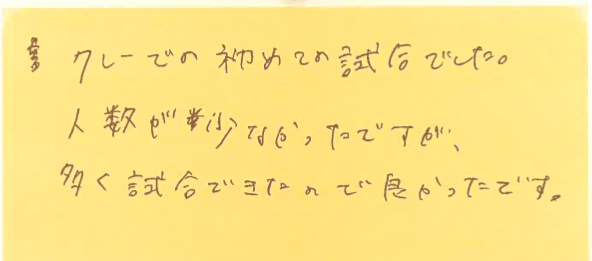 クレーでの初めての試合でした。
人数が少なかったですが、
多く試合できたので良かったです。